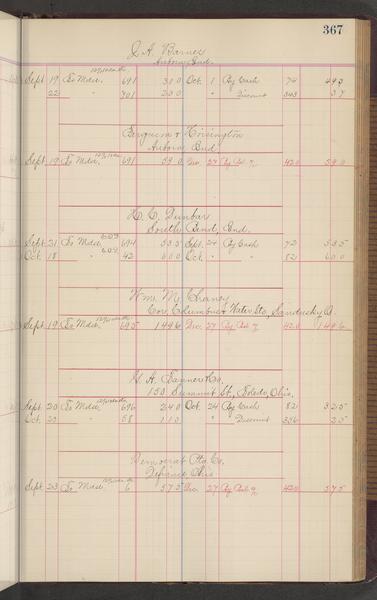 367
J. A. Barnes
Auburn, Ind.
Sept 19 To Mdse 691 310 Oct. 1 By Cash 74 493
22 " 701 230 " " Discount 343 37
Ferguson & Hoisington
Auburn Ind
Sept. 19 To Mdse 691 590 Dec. 27 By Bal. 420 590
H. C. Dunbar
South Bend, Ind.
Sept. 21 To Mdse 694 535 Sept. 24 By Cash 72 535
Oct. 18 " 42 600 Oct. " " 82 600
Wm. M. Chaney
Cor. Columbus & Water Sts., Sandusky O.
Sept. 19 To Mdse. 695 1496 Dec. 27 By Bal. 420 1496
H. A. Tanner & Co.
153 Summit St., Toledo, Ohio.
Sept. 20 To Mdse. 696 240 Oct. 24 By Cash 82 325
Oct. 23 " 58 110 " Discount 356 25
Democrat Ptg. Co.
Defiance Ohio
Sept. 23 To Mdse. 6 575 Dec. 27 By Bal. 420 575